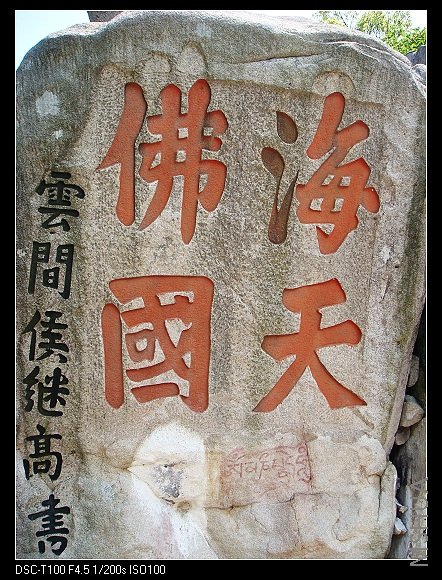 海天
佛國
雲間侯继高書
DSC-T100 F4.5 1/200s ISO100